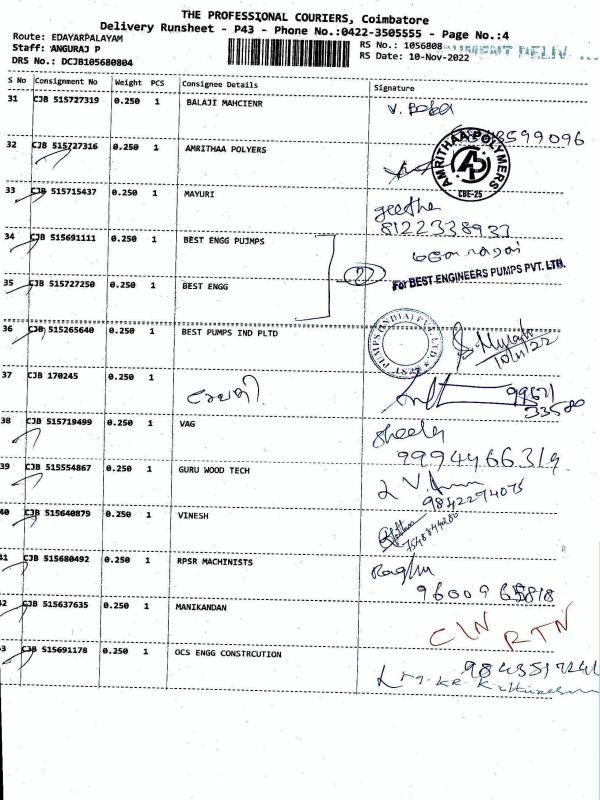 THE PROFESSIONAL COURIERS, Coimbatore
Delivery Runsheet - P43 - Phone No.:0422-3505555 - Page No.:4
Route: EDAYARPALAYAM
Staff: ANGURAJ P
RS No.: 1056808
DRS No.: DCJB105680804
RS Date: 10-Nov-2022
S No Consignment No Weight PCS Consignee Details Signature
31 CJB 515727319 0.250 1 BALAJI MAHCIENR
32 CJB 515727316 0.250 1 AMRITHAA POLYERS
AMRITHAA POLYMERS
AP
CBE-25
33 CJB 515715437 0.250 1 MAYURI geetha
8122338937
34 CJB 515691111 0.250 1 BEST ENGG PUJMPS
35 CJB 515727250 0.250 1 BEST ENGG
2
For BEST ENGINEERS PUMPS PVT. LTD.
36 CJB 515265640 0.250 1 BEST PUMPS IND PLTD
10/11/22
37 CJB 170245 0.250 1
99621
33580
38 CJB 515719499 0.250 1 VAG Sheela
9994466319
39 CJB 515554867 0.250 1 GURU WOOD TECH
9842274075
40 CJB 515640879 0.250 1 VINESH
41 CJB 515680492 0.250 1 RPSR MACHINISTS Raghu
9600965818
42 CJB 515637635 0.250 1 MANIKANDAN
CLN RTN
43 CJB 515691178 0.250 1 OCS ENGG CONSTRCUTION